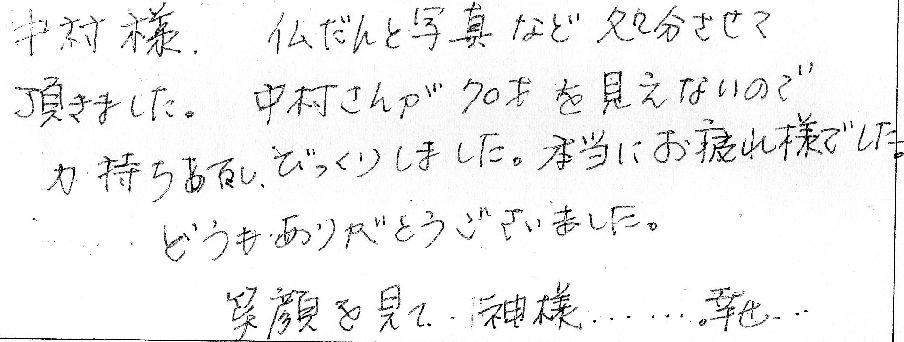 中村様. 仏だんと写真など処分させて
頂きました。 中村さんが70才を見えないので
力持ち びっくりしました。本当にお疲れ様でした。
どうもありがとうございました。
笑顔を見て..神様.......幸せ...